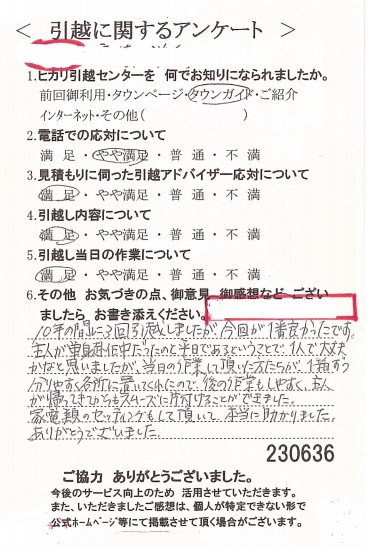 ＜ 引越に関するアンケート ＞
1.ヒカリ引越センターを 何でお知りになられましたか。
前回御利用・タウンページ・タウンガイド・ご紹介
インターネット・その他(　　　　　　　)
2.電話での応対について
満 足・やや満足・普 通・不 満
3.見積もりに伺った引越アドバイザー応対について
満 足・やや満足・普 通・不 満
4.引越し内容について
満 足・やや満足・普 通・不 満
5.引越し当日の作業について
満 足・やや満足・普 通・不 満
6.その他 お気づきの点、御意見、御感想など ござい
ましたら お書き添えください。
10年の間に3回引越しましたが、今回が1番良かったです。
主人が単身赴任中だったのと平日であるということで、1人で大丈夫
かなと思いましたが、当日の作業して頂いた方たちが、1箱ずつ
分りやすく各所に置いてくれたので、後の作業もしやすく、主人
が帰ってきてからもスムーズに片付けることができました。
家電類のセッティングもして頂いて、本当に助かりました。
ありがとうございました。
230636
ご協力 ありがとうございました。
今後のサービス向上のため 活用させていただきます。
また、いただきましたご感想は、個人が特定できない形で
公式ホームページ等にて掲載させて頂く場合がございます。